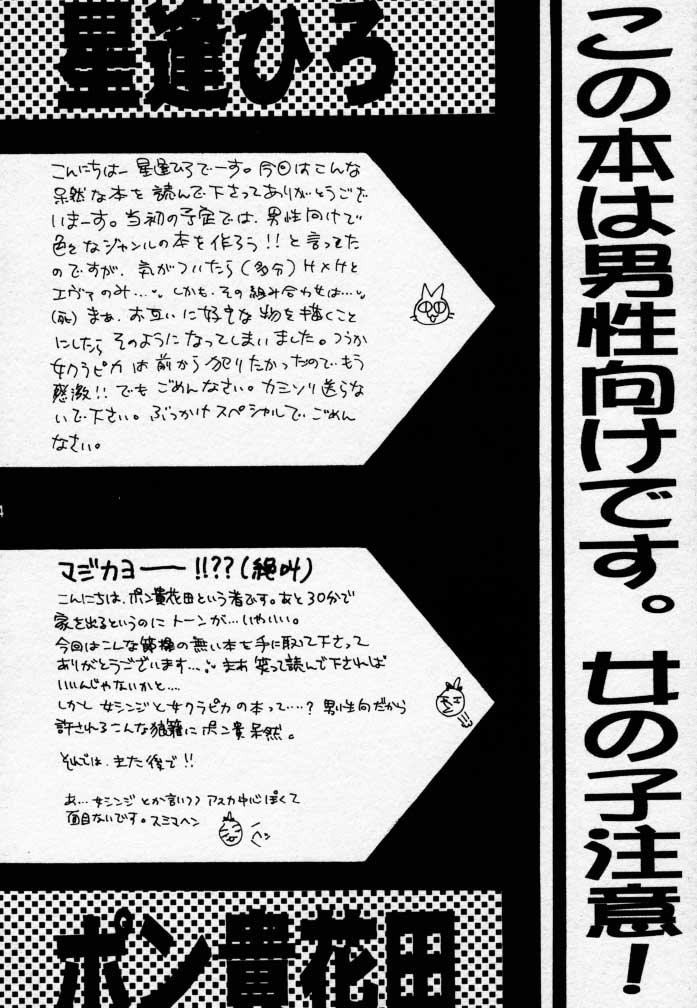 この本は男性向けです。女の子注意！
星逢ひろ
こんにちはー星逢ひろでーす。今回はこんな
呆然な本を読んで下さってありがとうござ
いまーす。当初の予定では、男性向けで
色々なジャンルの本を作ろう!!と言ってた
のですが、気がついたら(多分)H×Hと
エヴァのみ…。しかも、その組み合わせは…。
(死)まぁ、お互いに好きな物を描くこと
にしたら そのようになってしまいました。つうか
女クラピカ は前から犯りたかったので、もう
感激!! でも ごめんなさい。カミソリ送らな
いで下さい。ぶっかけスペシャルで ごめん
なさい。
4
マジカヨー!!??(絶叫)
こんにちは、ポン貴花田という者です。あと30分で
家を出るというのにトーンが…いやいい。
今回はこんな節操の無い本を手に取って下さって
ありがとうございます… まあ笑って読んで下されば
いいんじゃないかと…
しかし女シンジと女クラピカの本って…？男性向だから
許されるこんな狼藉にポン貴呆然。
それでは、また後で!!
あ…女シンジとか言いつつアスカ中心ぽくて
面目ないです。スミマヘン
ヘン
ポン貴花田